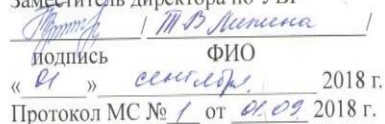 Заместитель директора по УВР
/ Т В Липина /
подпись ФИО
« 01 » сентября 2018 г.
Протокол МС № 1 от 01.09 2018 г.